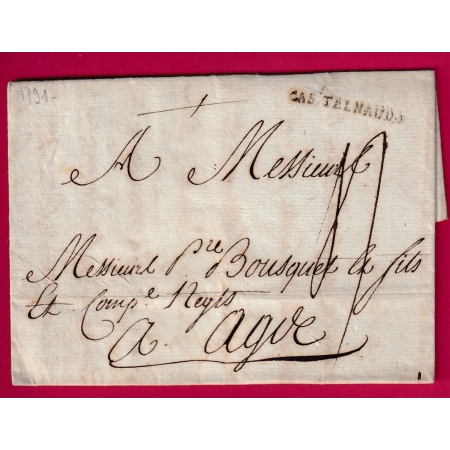 1791-
CASTELNAUDA
A Messieurs
Messieurs Pre Bousquet & fils
& Compe Negts
A Agde